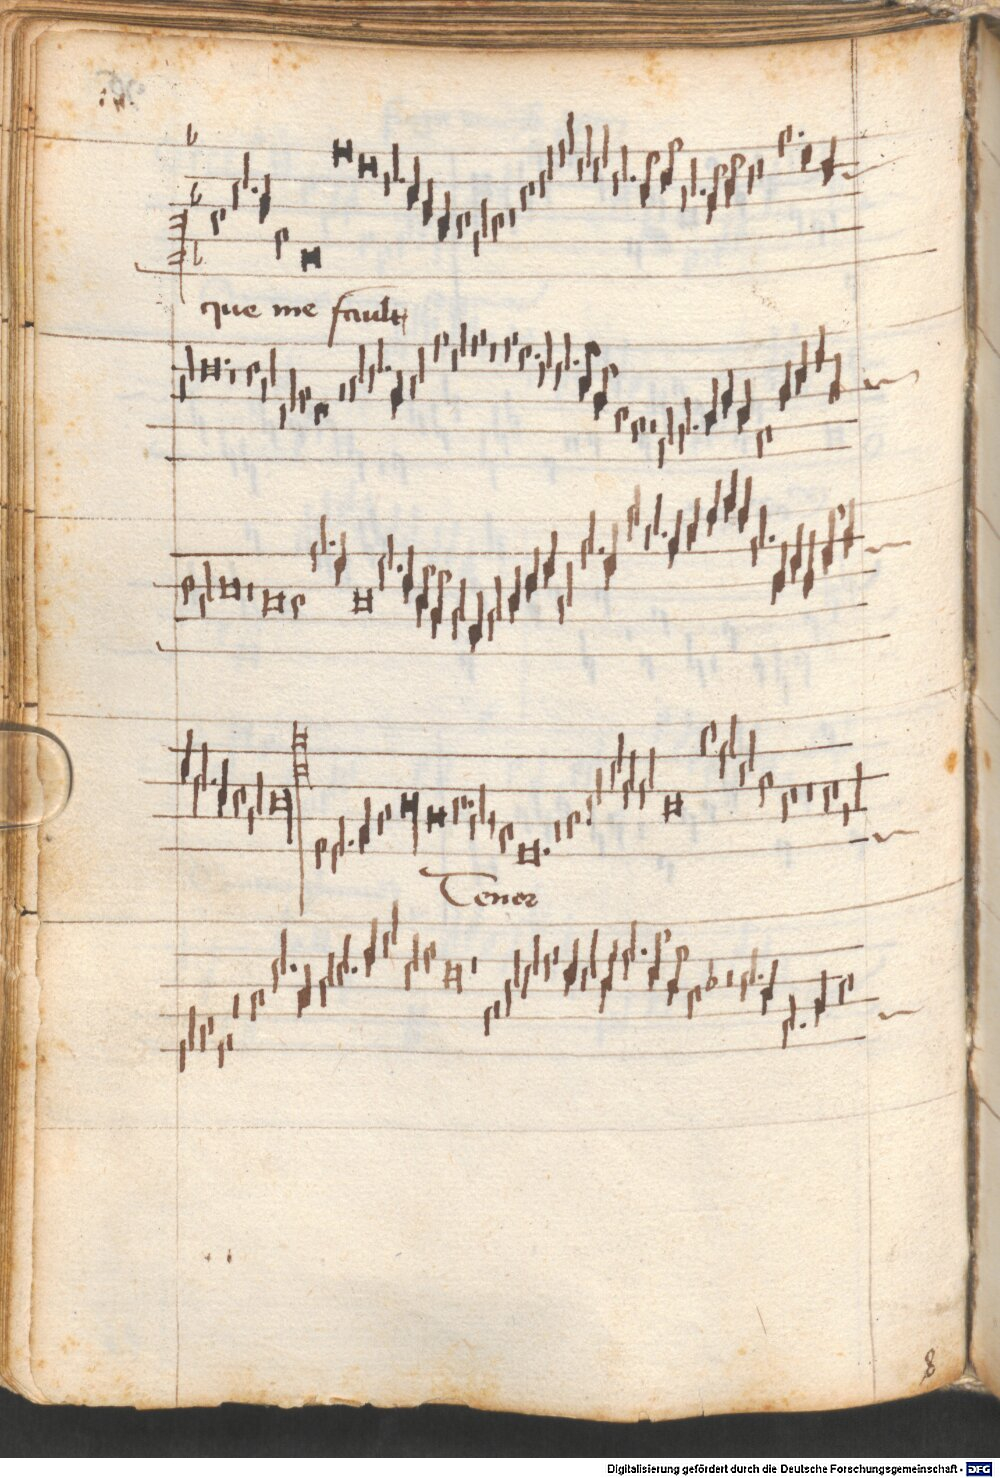 que me fault
Tenor
8
Digitalisierung gefördert durch die Deutsche Forschungsgemeinschaft - DFG